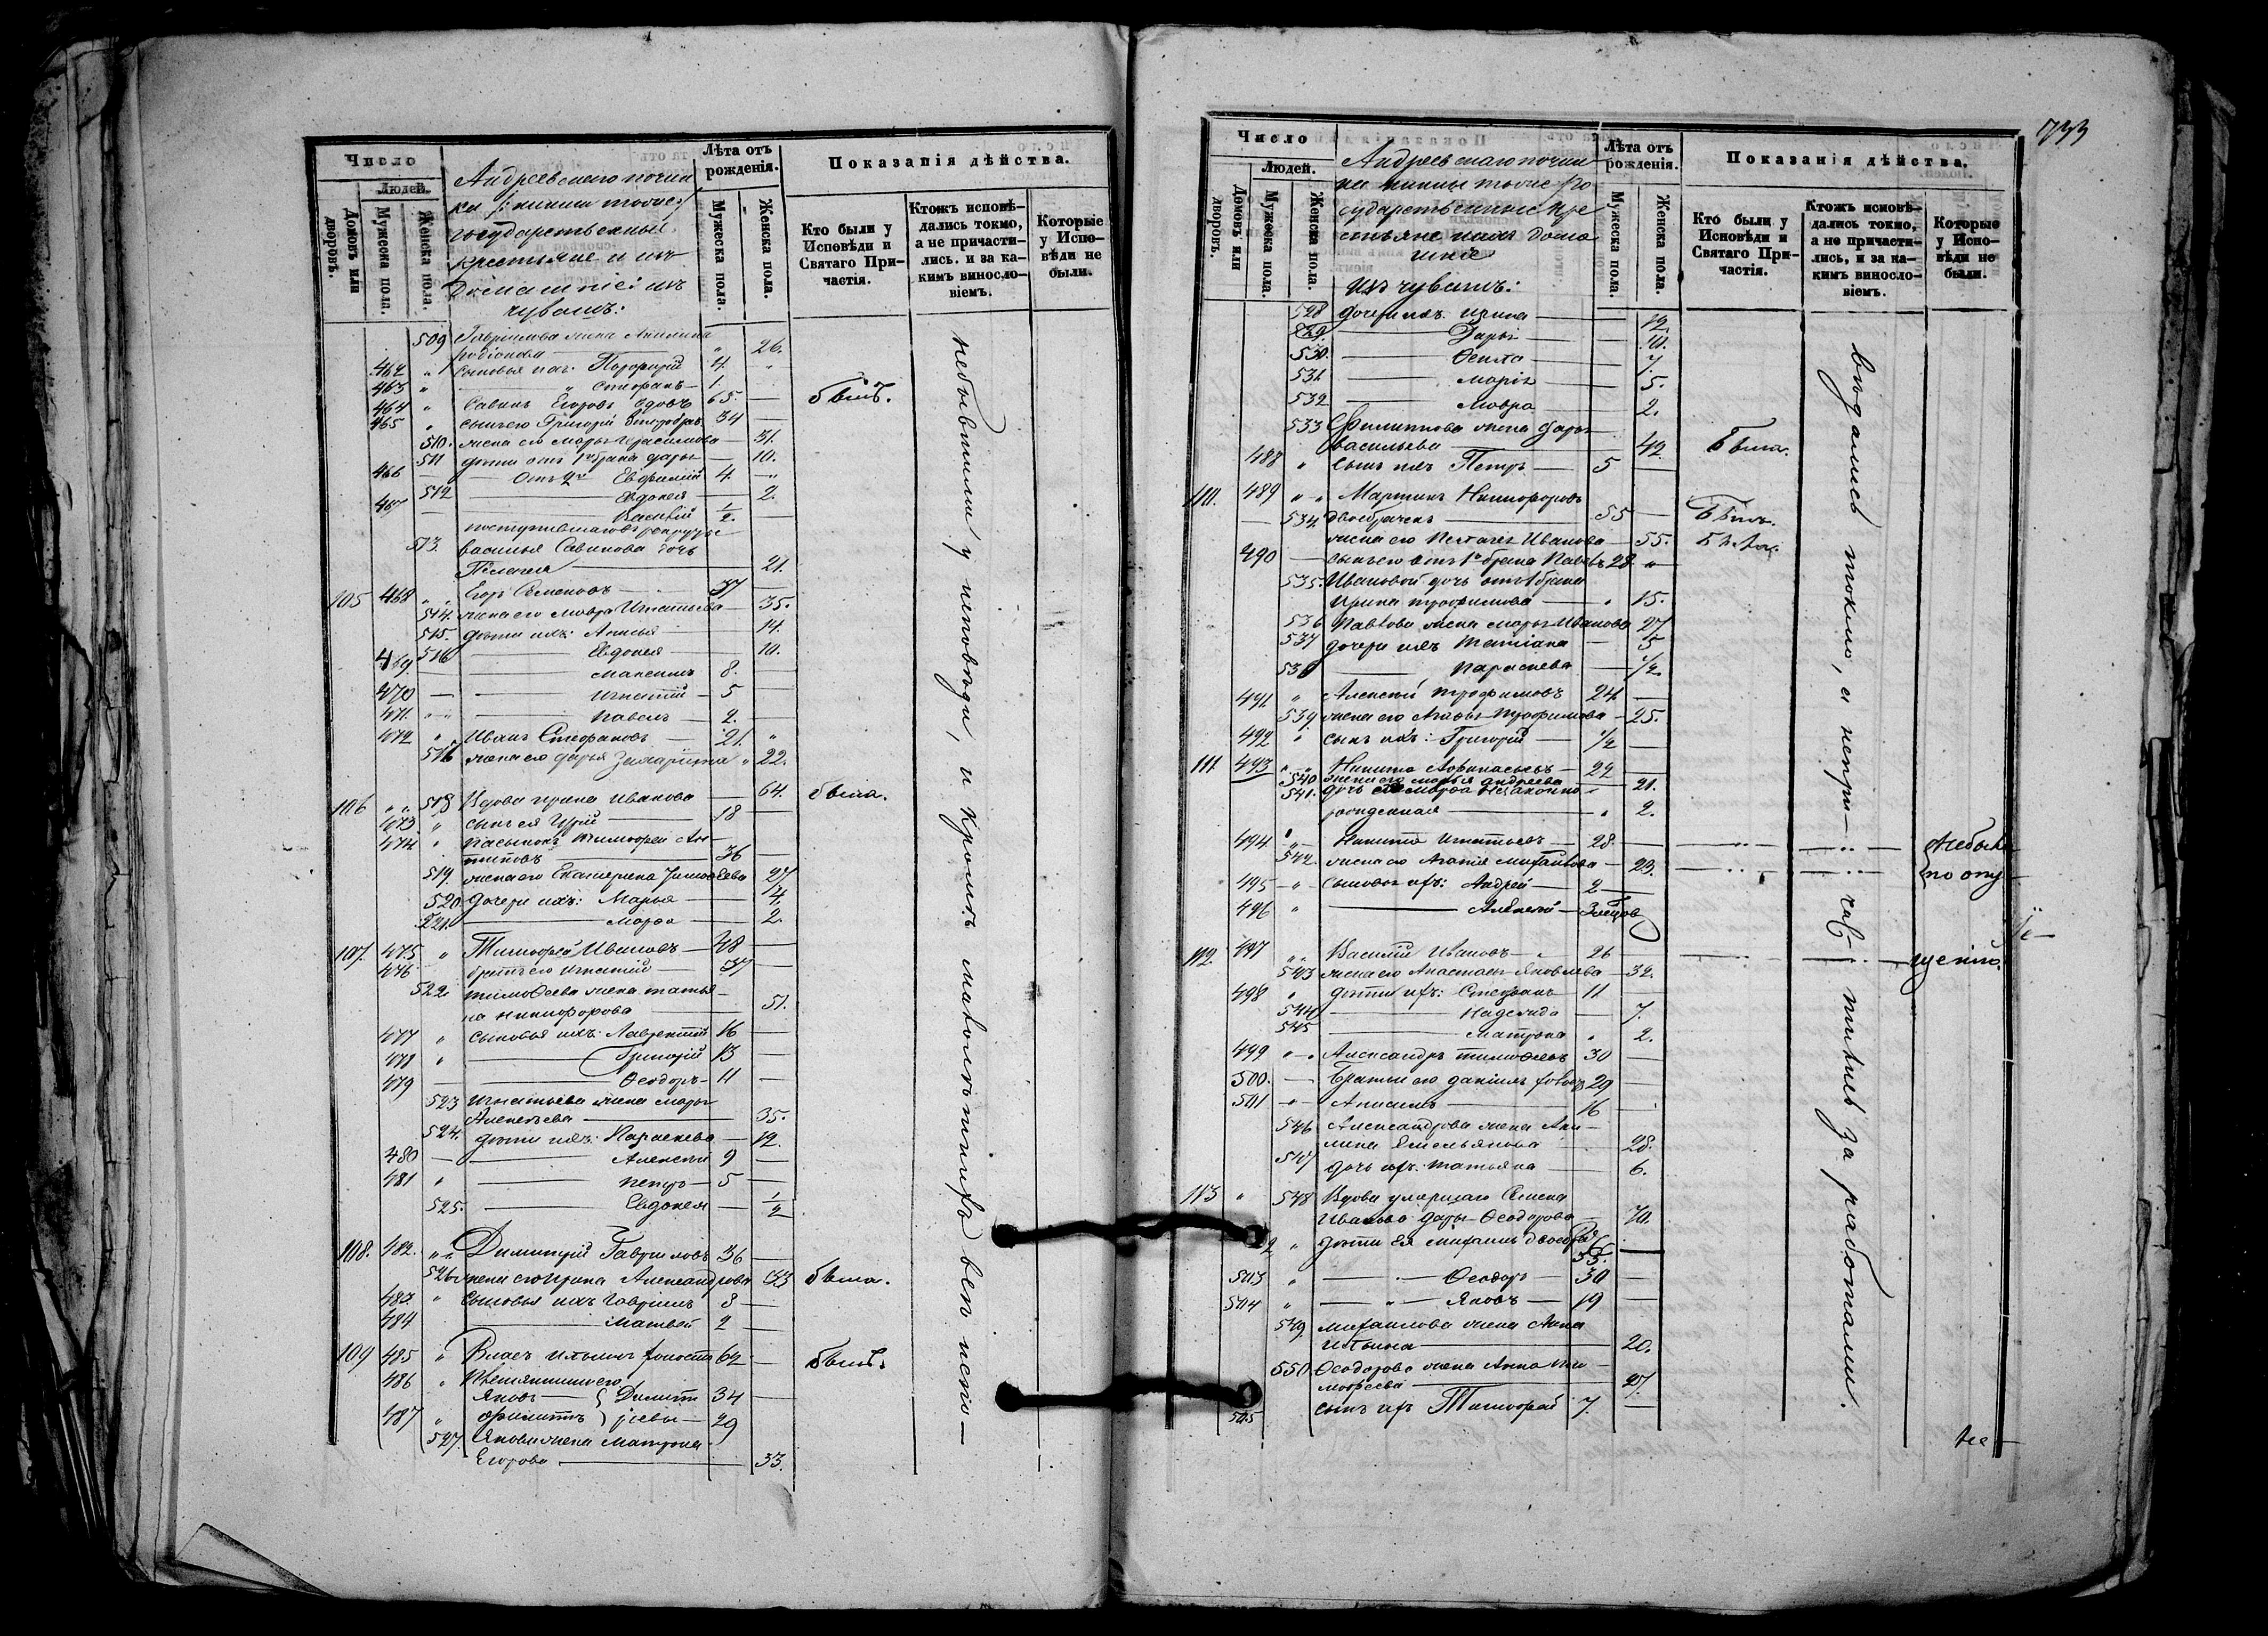 Число
Людей.
Домовъ или дворовъ.
Мужеска пола.
Женска пола.
Лѣта отъ рожденія.
Мужеска пола.
Женска пола.
Показанія дѣйства.
Кто были у Исповѣди и Святаго Причастія.
Ктожъ исповѣдались токмо, а не причастились. и за какимъ винословіемъ.
Которые у Исповѣди не были.
государственные
крестьяне и ихъ
домашніе изъ
чувашъ:
509
родіонова — 26.
462 " сыновья ихъ: Порфирій 4.
463 " " Стефанъ — 1.
464 " Савинъ Егоровъ вдовъ 65. — былъ.
465 " сынъ его Григорій второбрач. 34 —
510. жена его Марья Герасимова — 31.
511 дѣти отъ 1го брака Дарья — 10.
466 — отъ 2го Евфимій 4.
512 — Евдокея — 2.
467 — Василій 1/2.
513. Василья Савинова дочь
Пелагея — 21.
105 468 " Егоръ Семеновъ — 37 —
514. жена его Мавра Игнатьева — 35.
515. дѣти ихъ: Анисья — 14.
516 — Евдокея — 10.
469. — Максимъ 8. —
470 — Игнатій — 5 —
471. — Павелъ — 2. —
472 " Иванъ Стефановъ — 21. "
517 жена его Дарья " 22.
106 " " 518 Вдова Ирина Иванова — 64. была.
473 " сынъ ея — 18 —
474 " пасынокъ Тимофей Ан-
типовъ — 36 —
519. жена его Екатерина — 27
520. дочери ихъ: Марья — 4.
521. — Марфа — 2.
107. 475 " Тимофей Ивановъ — 48 —
476 братъ его Игнатій — 37 —
522. Тимоѳеева жена Татья-
на Никифорова — 51.
477 " сыновья ихъ: Лаврентій 16 —
478 " — Григорій 13 —
479 — Ѳеодоръ — 11 —
523 Игнатьева жена Марья
Алексѣева — 35.
524. дѣти ихъ: Параскева — 12.
480 — Алексѣй 9 —
481 " — Петръ — 5 —
525. — Евдокея — 1/2
108. 482. " " Димитрій Гавриловъ 36 —
526 жена его Ирина Александрова 33 была.
483. " сыновья ихъ Гавріилъ 8 —
484 — Матвей 2 —
109 485 " Власъ Ильинъ холостъ 62 — былъ.
486 " Племянники его
Яковъ — } Димит- 34 —
487 " Филиппъ } ріевы — 29
527. Яковл. жена Матрона
Егорова — 33.
небывшими у исповѣди, и кромѣ малолѣтнихъ всѣ испо—
733
Число
Людей.
Домовъ или дворовъ.
Мужеска пола.
Женска пола.
Лѣта отъ рожденія.
Мужеска пола.
Женска пола.
Показанія дѣйства.
Кто были у Исповѣди и Святаго Причастія.
Ктожъ исповѣдались токмо, а не причастились, и за какимъ винословіемъ.
Которые у Исповѣди не были.
Андреевскаго почин-
ка
сударственные кре
стьяне
изъ чувашъ:
528 дочери ихъ: Ирина — 12.
529. — Дарья — 10.
530. — Ѳекла — 7.
531 — Марія — 5.
532 — Мавра — 2.
533 Филиппова жена Дарья
Васильева — 42. Была.
488 " Сынъ ихъ Петръ — 5 —
110. 489 " " Мартинъ Никифоровъ
двоебрачен. — 55 — Былъ.
534. жена его Иванова — 55. Была.
490 — сынъ его отъ 1го брака Павелъ 28. "
535. Ивановой дочь отъ 1 брака
Ирина Трофимова — 15.
536 Павлова жена Марья Иванова 27
537 дочери ихъ Татіана — 5
538 — Параскева — 1/2.
491 " Алексѣй Трофимовъ 24 —
539. жена его Трофимова — 25.
492 " сынъ ихъ: Григорій — 1/2 —
111 493 " " Никита Афанасьевъ — 22 —
540. жена его Марья Андреева 21.
541. дочь Марфа незаконно-
рожденная — 2.
494 " Никита Игнатьевъ — 28. — небыли
542. жена его Агафія Михайлова — 23. по опу-
495 — " — сыновья ихъ: Андрей — 2 —
496 " — Алексѣй — 3 месяцов
112. 497 " " Василій Ивановъ — " 26 — щенію.
543 жена его Анастасія Яковлева — 32.
498 " дѣти ихъ: Стефанъ — 11 —
544 — Надежда — 7.
545 — Матрона " 2.
499 " — " Александръ Тимоѳеевъ 30 —
500. — Братья его Даніилъ 20 —
501 " — Анисимъ — 16 —
546 Александрова жена Аки-
лина Емельянова — 28.
547 дочь ихъ: Татьяна — 6.
113 " 548 Вдова умершаго Семена
Иванова Дарья Ѳеодорова — 70.
2 " дѣти ея Михаилъ
503 " — Ѳеодоръ — 30 —
504 " — " — Яковъ — 19 —
549 Михайлова жена Анна
Ильина — 20.
550. Ѳеодорова жена Анна Ти-
мофеева — 27.
505 сынъ ихъ Тимофей 7. —
вѣдались токмо, а непри- час- тились за работами.